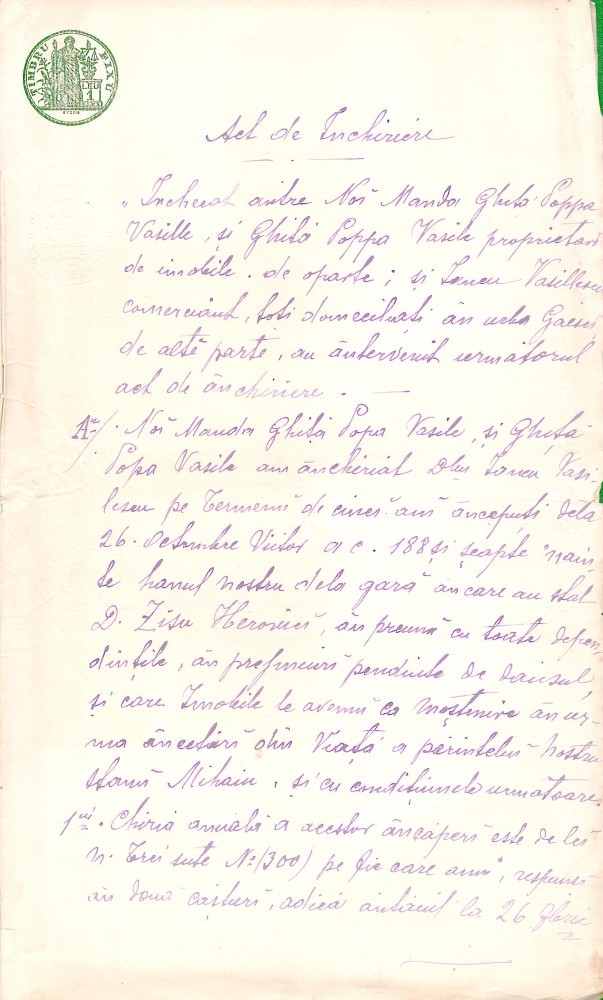 TIMBRU FIX
1 LEU
Act de Inchiriere
„Incheeat äntre Noi Manda Ghită Poppa
Vasille, si Ghită Poppa Vasile proprietari
de imobile. de oparte; și Iancu Vasillescu
comerciant, toti domeciliati ăn urba Gaesci
de altă parte, au ăntervenit urmatorul
act de ănchiriere. —
A. Noi Manda Ghită Popa Vasile, și Ghită
Popa Vasile am ănchiriat Dlui Iancu Vasi-
lescu pe termenu de cinci ani ănceputi dela
26. Octombre Viitor a c. 188 și șeapte nain-
te hanul nostru dela gară ăn care au stat
D. Zisu Heronici, ăn preună cu toate depen-
dințile, ăn prejmuiri pendinte de dănsul
și care Imobile le avemu ca Moștenire ăn ur-
ma ăncetări din Viață a părintelui Nostru
Stanu Mihaiu. și cu condițiunele următoare.
1. Chiria anuală a acestor ăncăperi este de lei
n. Trei sute No. (300) pe fie care anu, respunși
ăn două cășturi, adică ăntăiul la 26